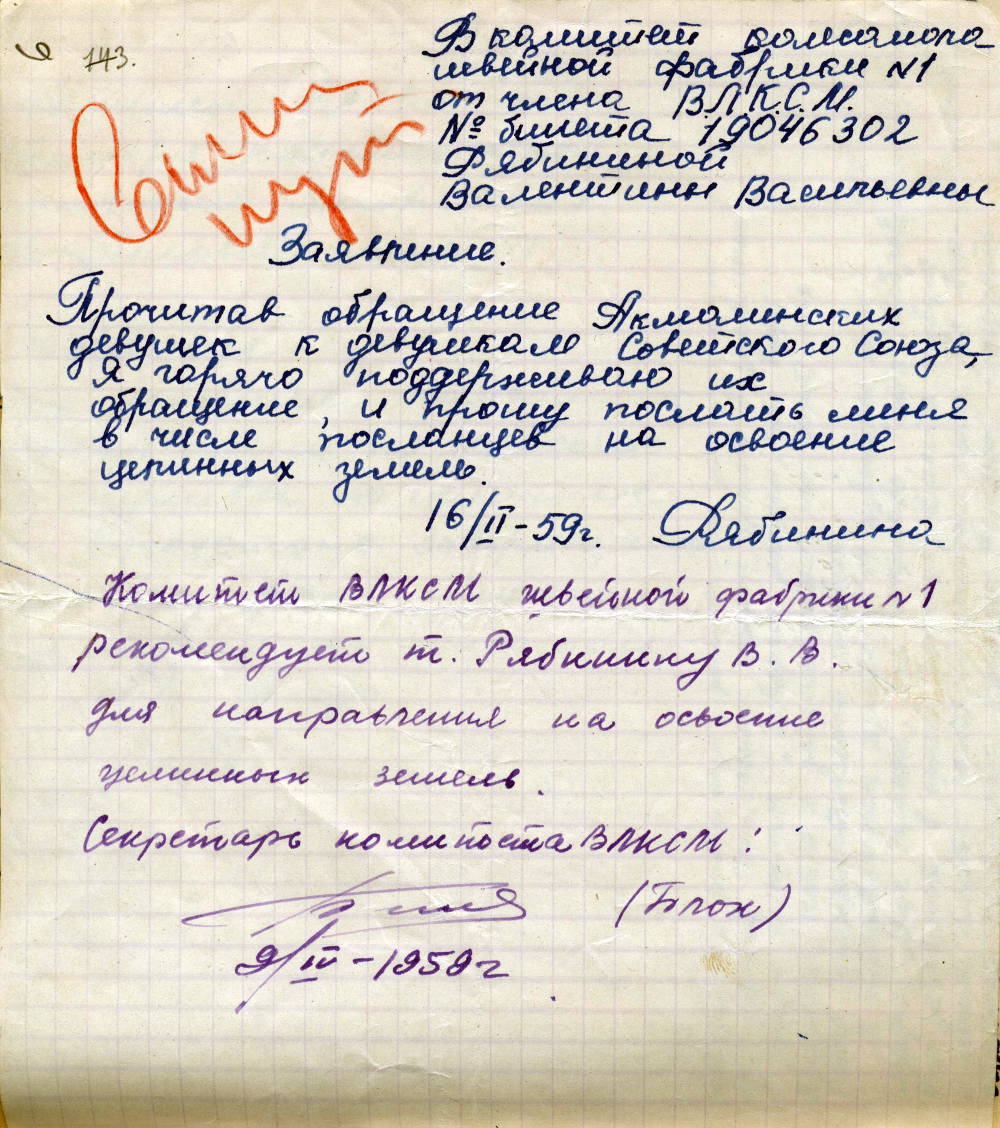 143.
В комитет комсомола
швейной фабрики №1
от члена В.Л.К.С.М.
№ билета 19046302
Рябининой
Валентины Васильевны
Заявление.
Прочитав обращение Акмолинских
девушек к девушкам Советского Союза,
я горячо поддерживаю их
обращение, и прошу послать меня
в числе посланцев на освоение
целинных земель.
16/II-59г. Рябинина
Комитет ВЛКСМ швейной фабрики №1
рекомендует т. Рябинину В. В.
для направления на освоение
целинных земель.
Секретарь комитета ВЛКСМ:
(Блох)
9/IV-1959г